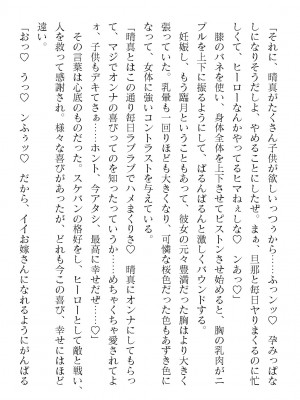 「それに、晴真がたくさん子供が欲しいっつぅから……ふっンッ♡　孕みっぱな
しになりそうだしよ、やめることにしたぜ。まぁ、旦那と毎日ヤりまくるのに忙
しくて、ヒーローなんかやってるヒマねぇしな♡　ンあっ♡」
　膝のバネを使い、身体全体を上下させてピストンさせ始めると、胸の乳肉が二
プルを上下に振るようにして、ばるんばるんと激しくバウンドする。
　妊娠し、もう臨月ということもあって、彼女の元々豊満だった胸はより大きく
張っていた。乳暈も一回りほども大きくなり、可憐な桜色だった色もあずき色に
なって、女体に強いコントラストを与えている。
「晴真とはこの通り毎日ラブラブでハメまくりさ♡　晴真にオンナにしてもらっ
て、マジでオンナの喜びってのを知ったっていうか……めちゃくちゃ愛されてよ
ォ、子供もデキてさぁ……ホント、今アタシ、最高に幸せだぜ……♡」
　その言葉は心底のものだった。スケバンの格好をし、ヒーローとして敵と戦い、
人を救って感謝され。様々な喜びがあったが、どれも今この喜び、幸せにはほど
遠い。
「おっ♡　うっ♡　ンふぅッ♡　だから、イイお嫁さんになれるようにがんばる